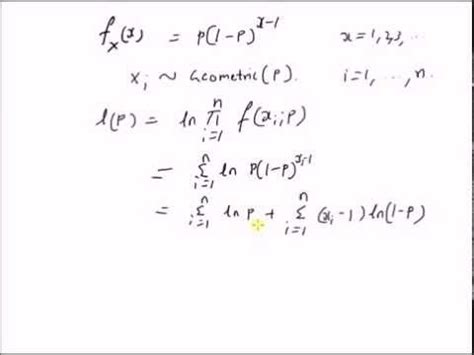 fₓ(x) = p(1-p)^{x-1} x = 1,2,3,...
xᵢ ~ Geometric(p). i=1,...,n.
l(p) = ln ∏_{i=1}^{n} f(xᵢ;p)
= Σ_{i=1}^{n} ln p(1-p)^{xᵢ-1}
= Σ_{i=1}^{n} ln p + Σ_{i=1}^{n} (xᵢ-1) ln(1-p)